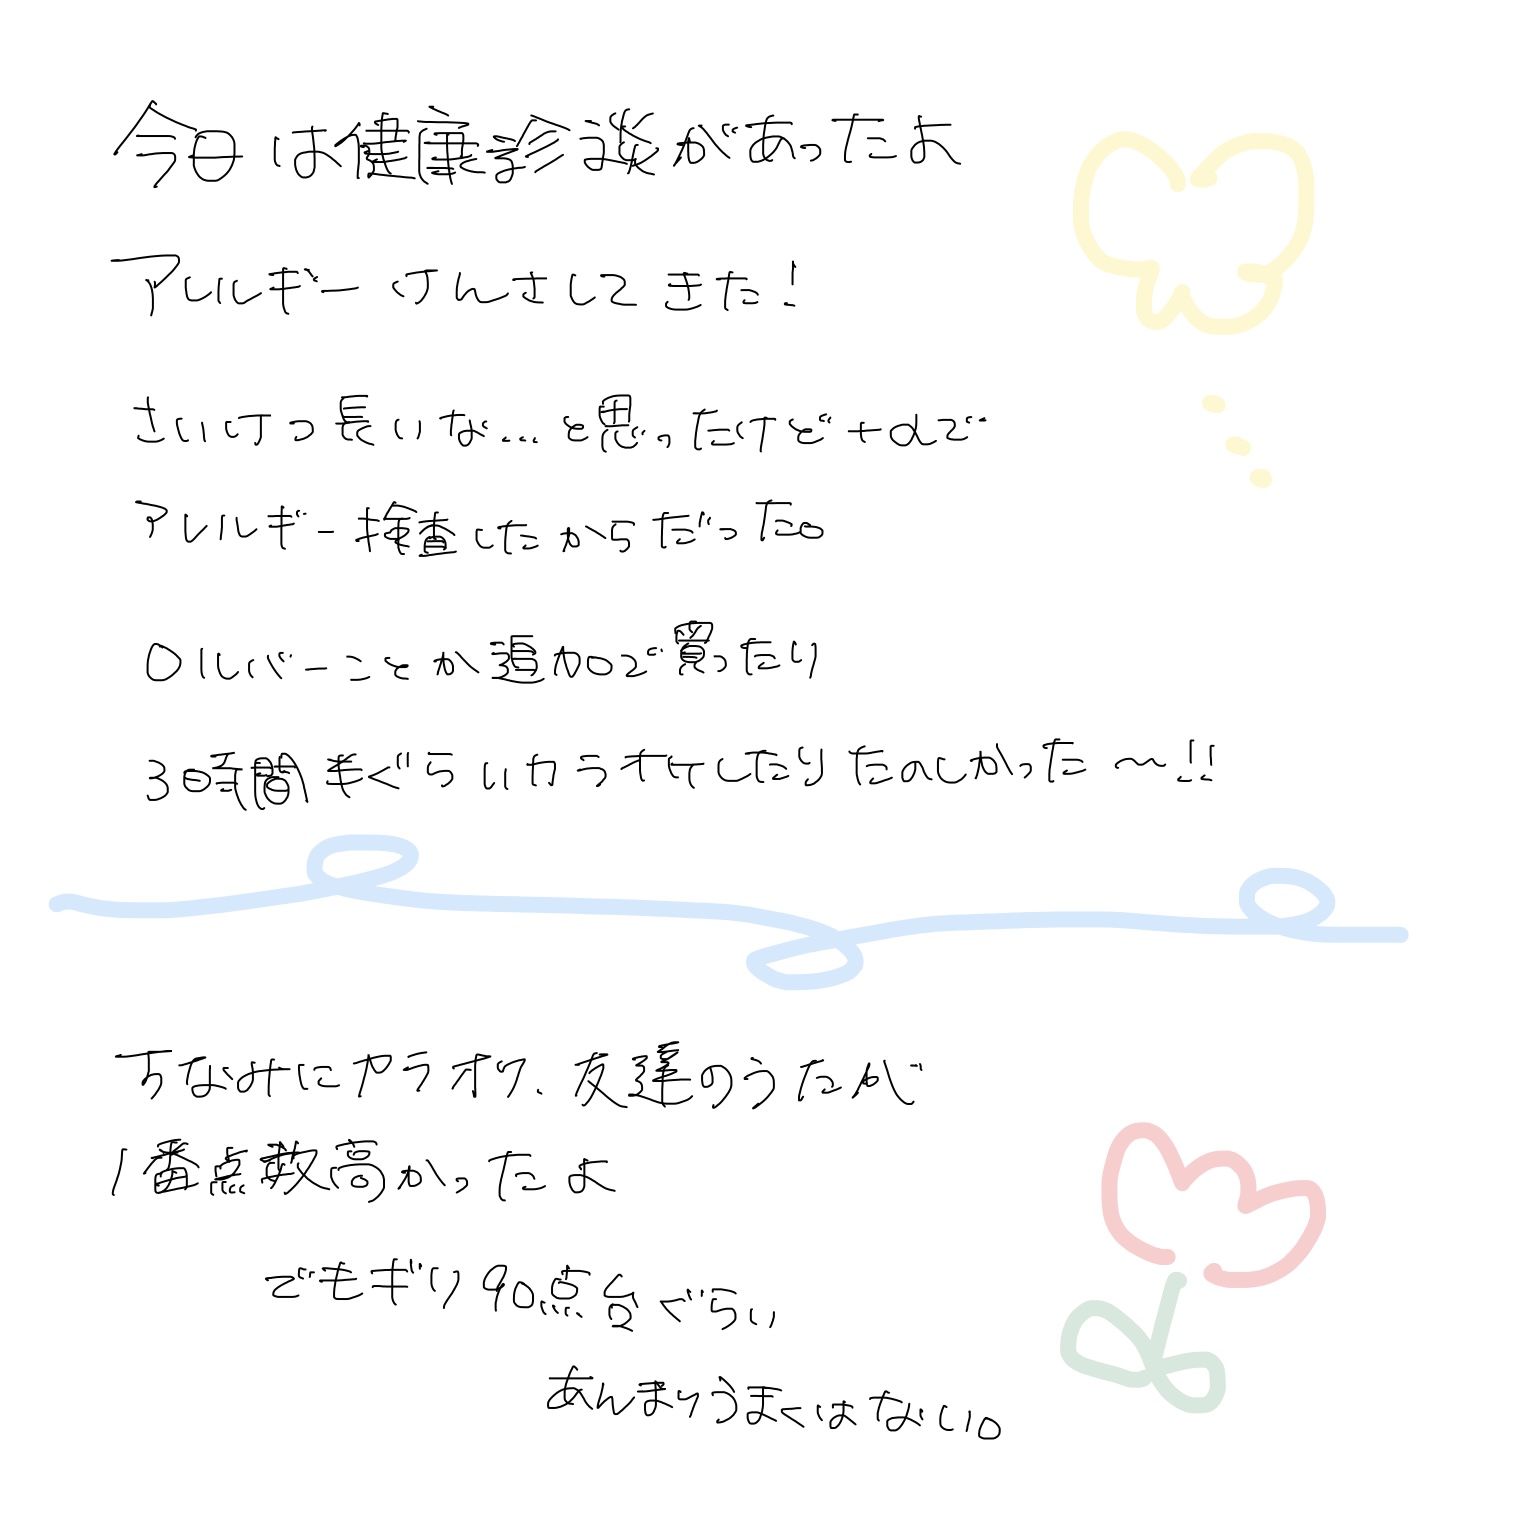 今日は健康診談があったよ
アレルギーけんさしてきた!
さいけつ長いな...と思ったけど+αで
アレルギー検査したからだった。
ロルバーことか追加で買ったり
3時間半ぐらいカラオケしたりたのしかった〜!!
ちなみにカラオケ、友達のうたが
1番点数高かったよ
でもギリ90点台ぐらい
あんまりうまくはない。